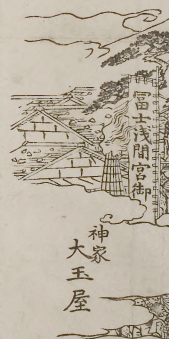 冨士浅間宮御
神家
大玉屋